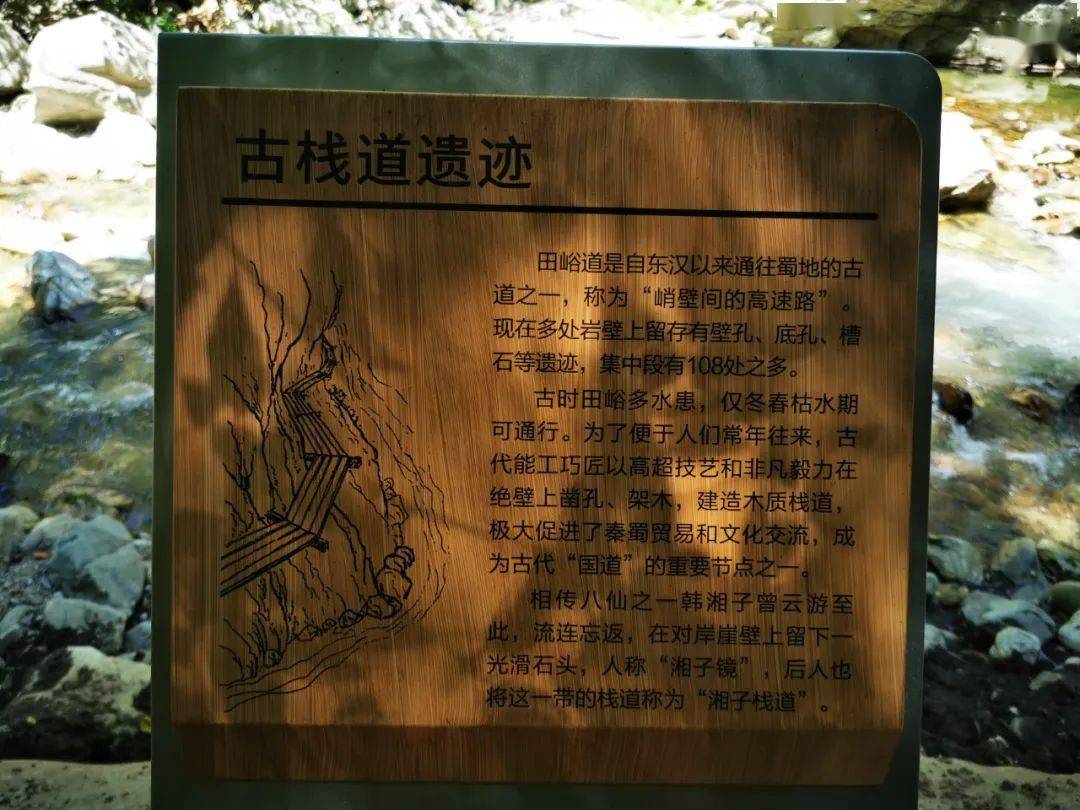 古栈道遗迹
田峪道是自东汉以来通往蜀地的古
道之一，称为“峭壁间的高速路”。
现在多处岩壁上留存有壁孔、底孔、槽
石等遗迹，集中段有108处之多。
古时田峪多水患，仅冬春枯水期
可通行。为了便于人们常年往来，古
代能工巧匠以高超技艺和非凡毅力在
绝壁上凿孔、架木，建造木质栈道，
极大促进了秦蜀贸易和文化交流，成
为古代“国道”的重要节点之一。
相传八仙之一韩湘子曾云游至
此，流连忘返，在对岸崖壁上留下一
光滑石头，人称“湘子镜”，后人也
将这一带的栈道称为“湘子栈道”。